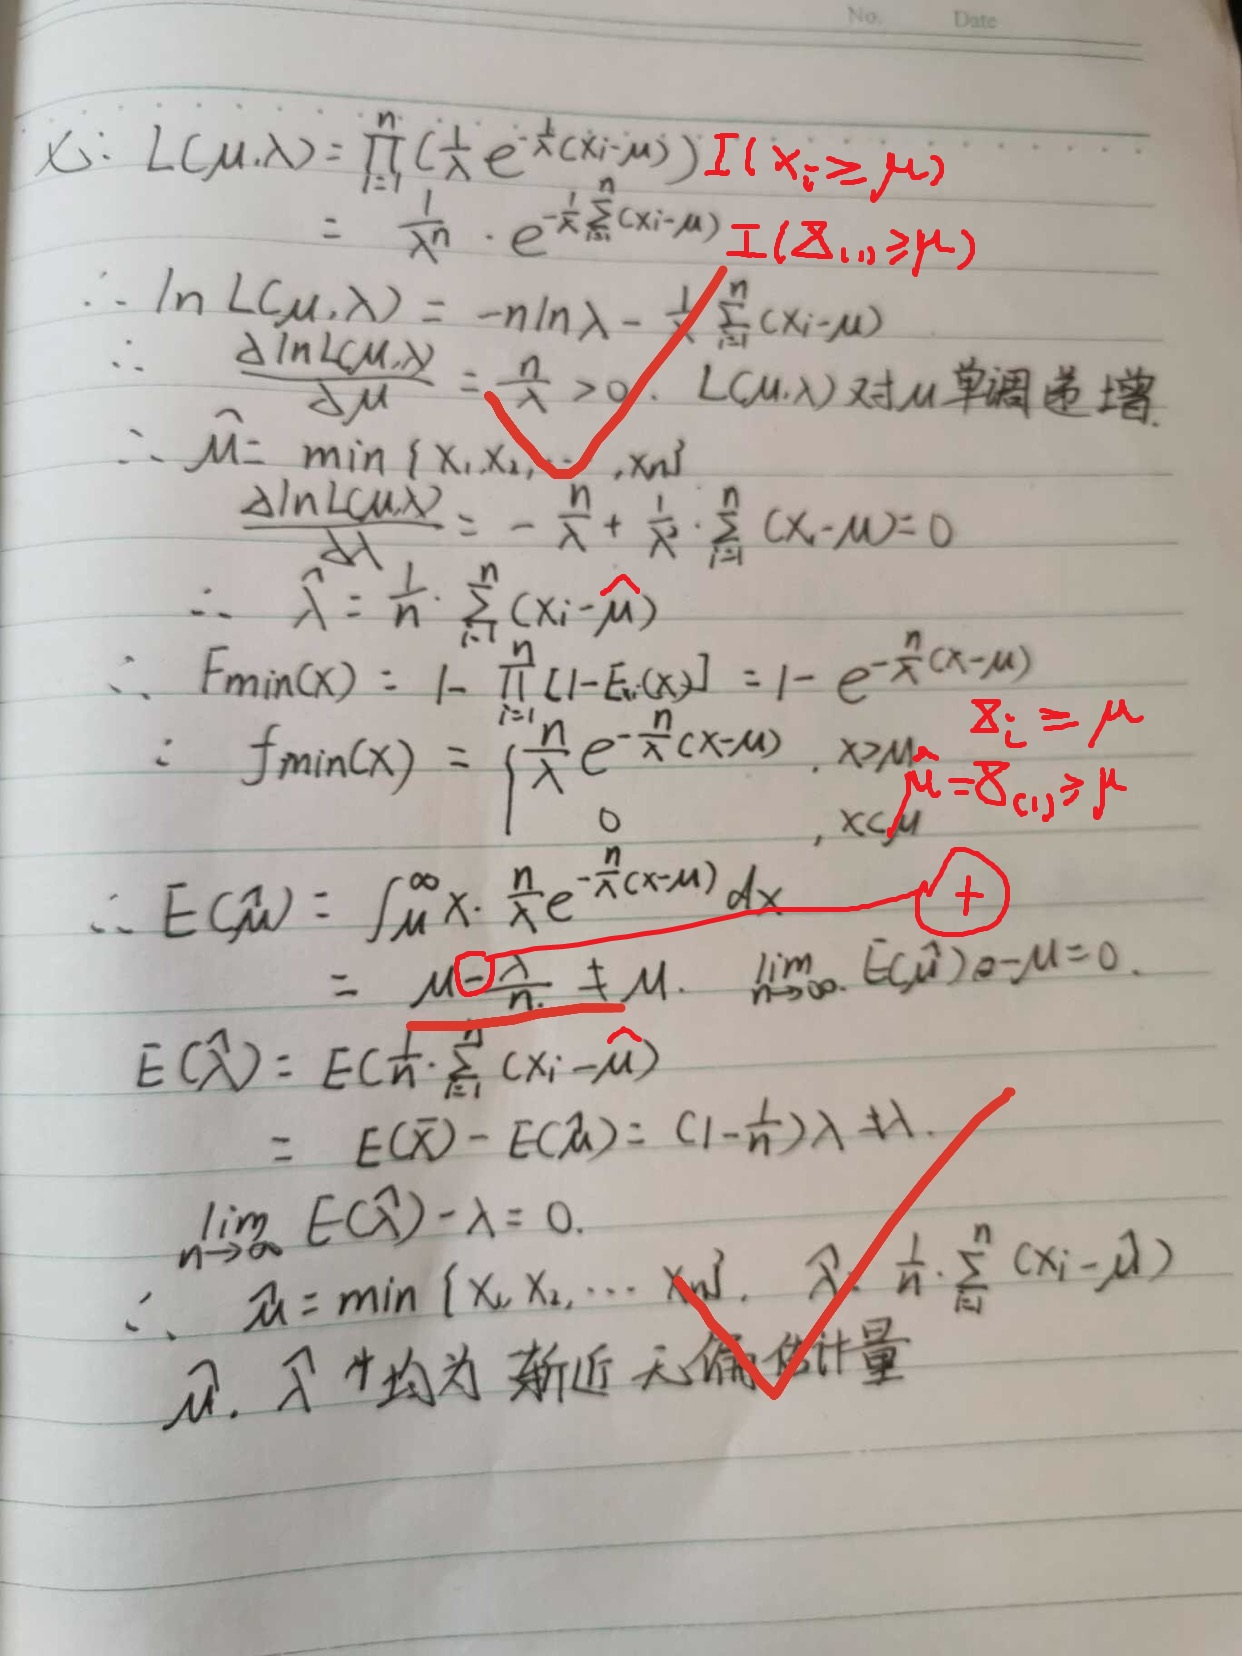 No. Date
∴ L(μ,λ) = ∏_{i=1}^{n} (1/λ e^{-1/λ(xi-μ)}) I(xi ≥ μ)
= 1/λ^n · e^{-1/λ ∑_{i=1}^{n}(xi-μ)} I(X_(1) ≥ μ)
∴ ln L(μ,λ) = -n ln λ - 1/λ ∑_{i=1}^{n} (xi-μ)
∴ ∂lnL(μ,λ)/∂μ = n/λ > 0. L(μ,λ) 对 μ 单调递增.
∴ μ̂ = min {x1,x2,…,xn}
∂lnL(μ,λ)/∂λ = - n/λ + 1/λ² · ∑_{i=1}^{n} (xi-μ) = 0
∴ λ̂ = 1/n · ∑_{i=1}^{n} (xi-μ̂)
∴ Fmin(x) = 1 - ∏_{i=1}^{n} [1-Fxi(x)] = 1 - e^{-n/λ(x-μ)}
Xi ≥ μ
∴ fmin(x) = { n/λ e^{-n/λ(x-μ)}, x≥μ
μ̂ = X_(1) ≥ μ
0, x<μ
∴ E(μ̂) = ∫_μ^∞ x · n/λ e^{-n/λ(x-μ)} dx +
= μ - λ/n ≠ μ. lim_{n→∞} E(μ̂) - μ = 0.
E(λ̂) = E(1/n · ∑_{i=1}^{n} (xi-μ̂)
= E(x̄) - E(μ̂) = (1-1/n)λ ≠ λ.
lim_{n→∞} E(λ̂) - λ = 0.
∴ μ̂ = min {x1,x2,… xn}. λ̂ = 1/n · ∑_{i=1}^{n} (xi-μ̂)
μ̂. λ̂ 均为 渐近 无偏估计量